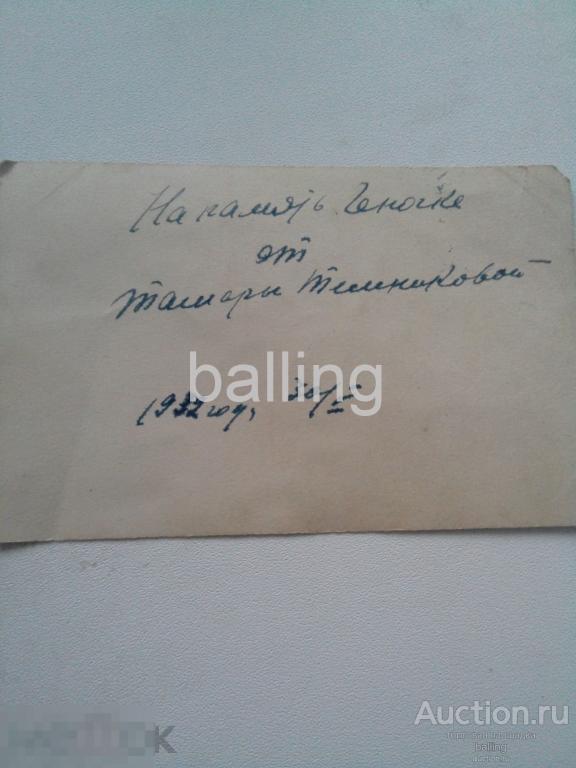 На память Геночке
от
Тамары Темниковой
balling
1932 год, 30/V
Auction.ru
balling